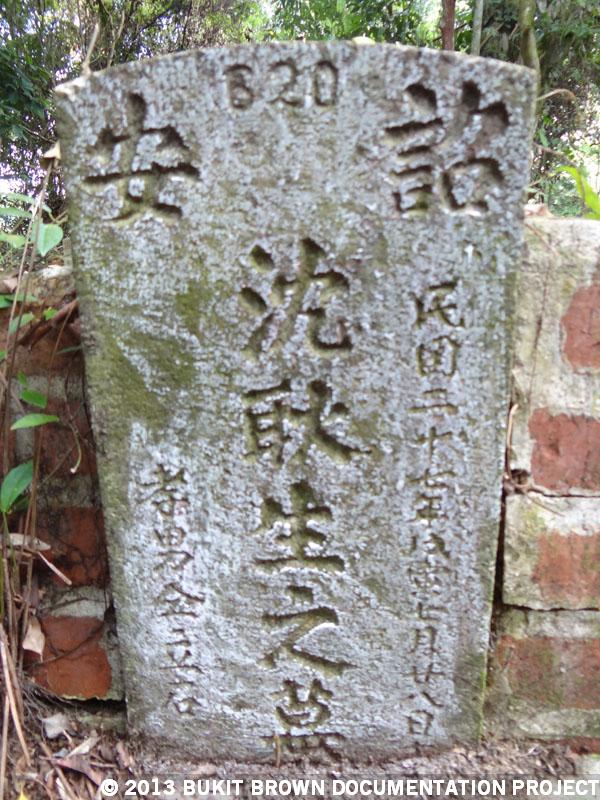 B20
詔安
民國二十七年戊寅七月廿八日
沈耿生之墓
孝男仝立石
© 2013 BUKIT BROWN DOCUMENTATION PROJECT